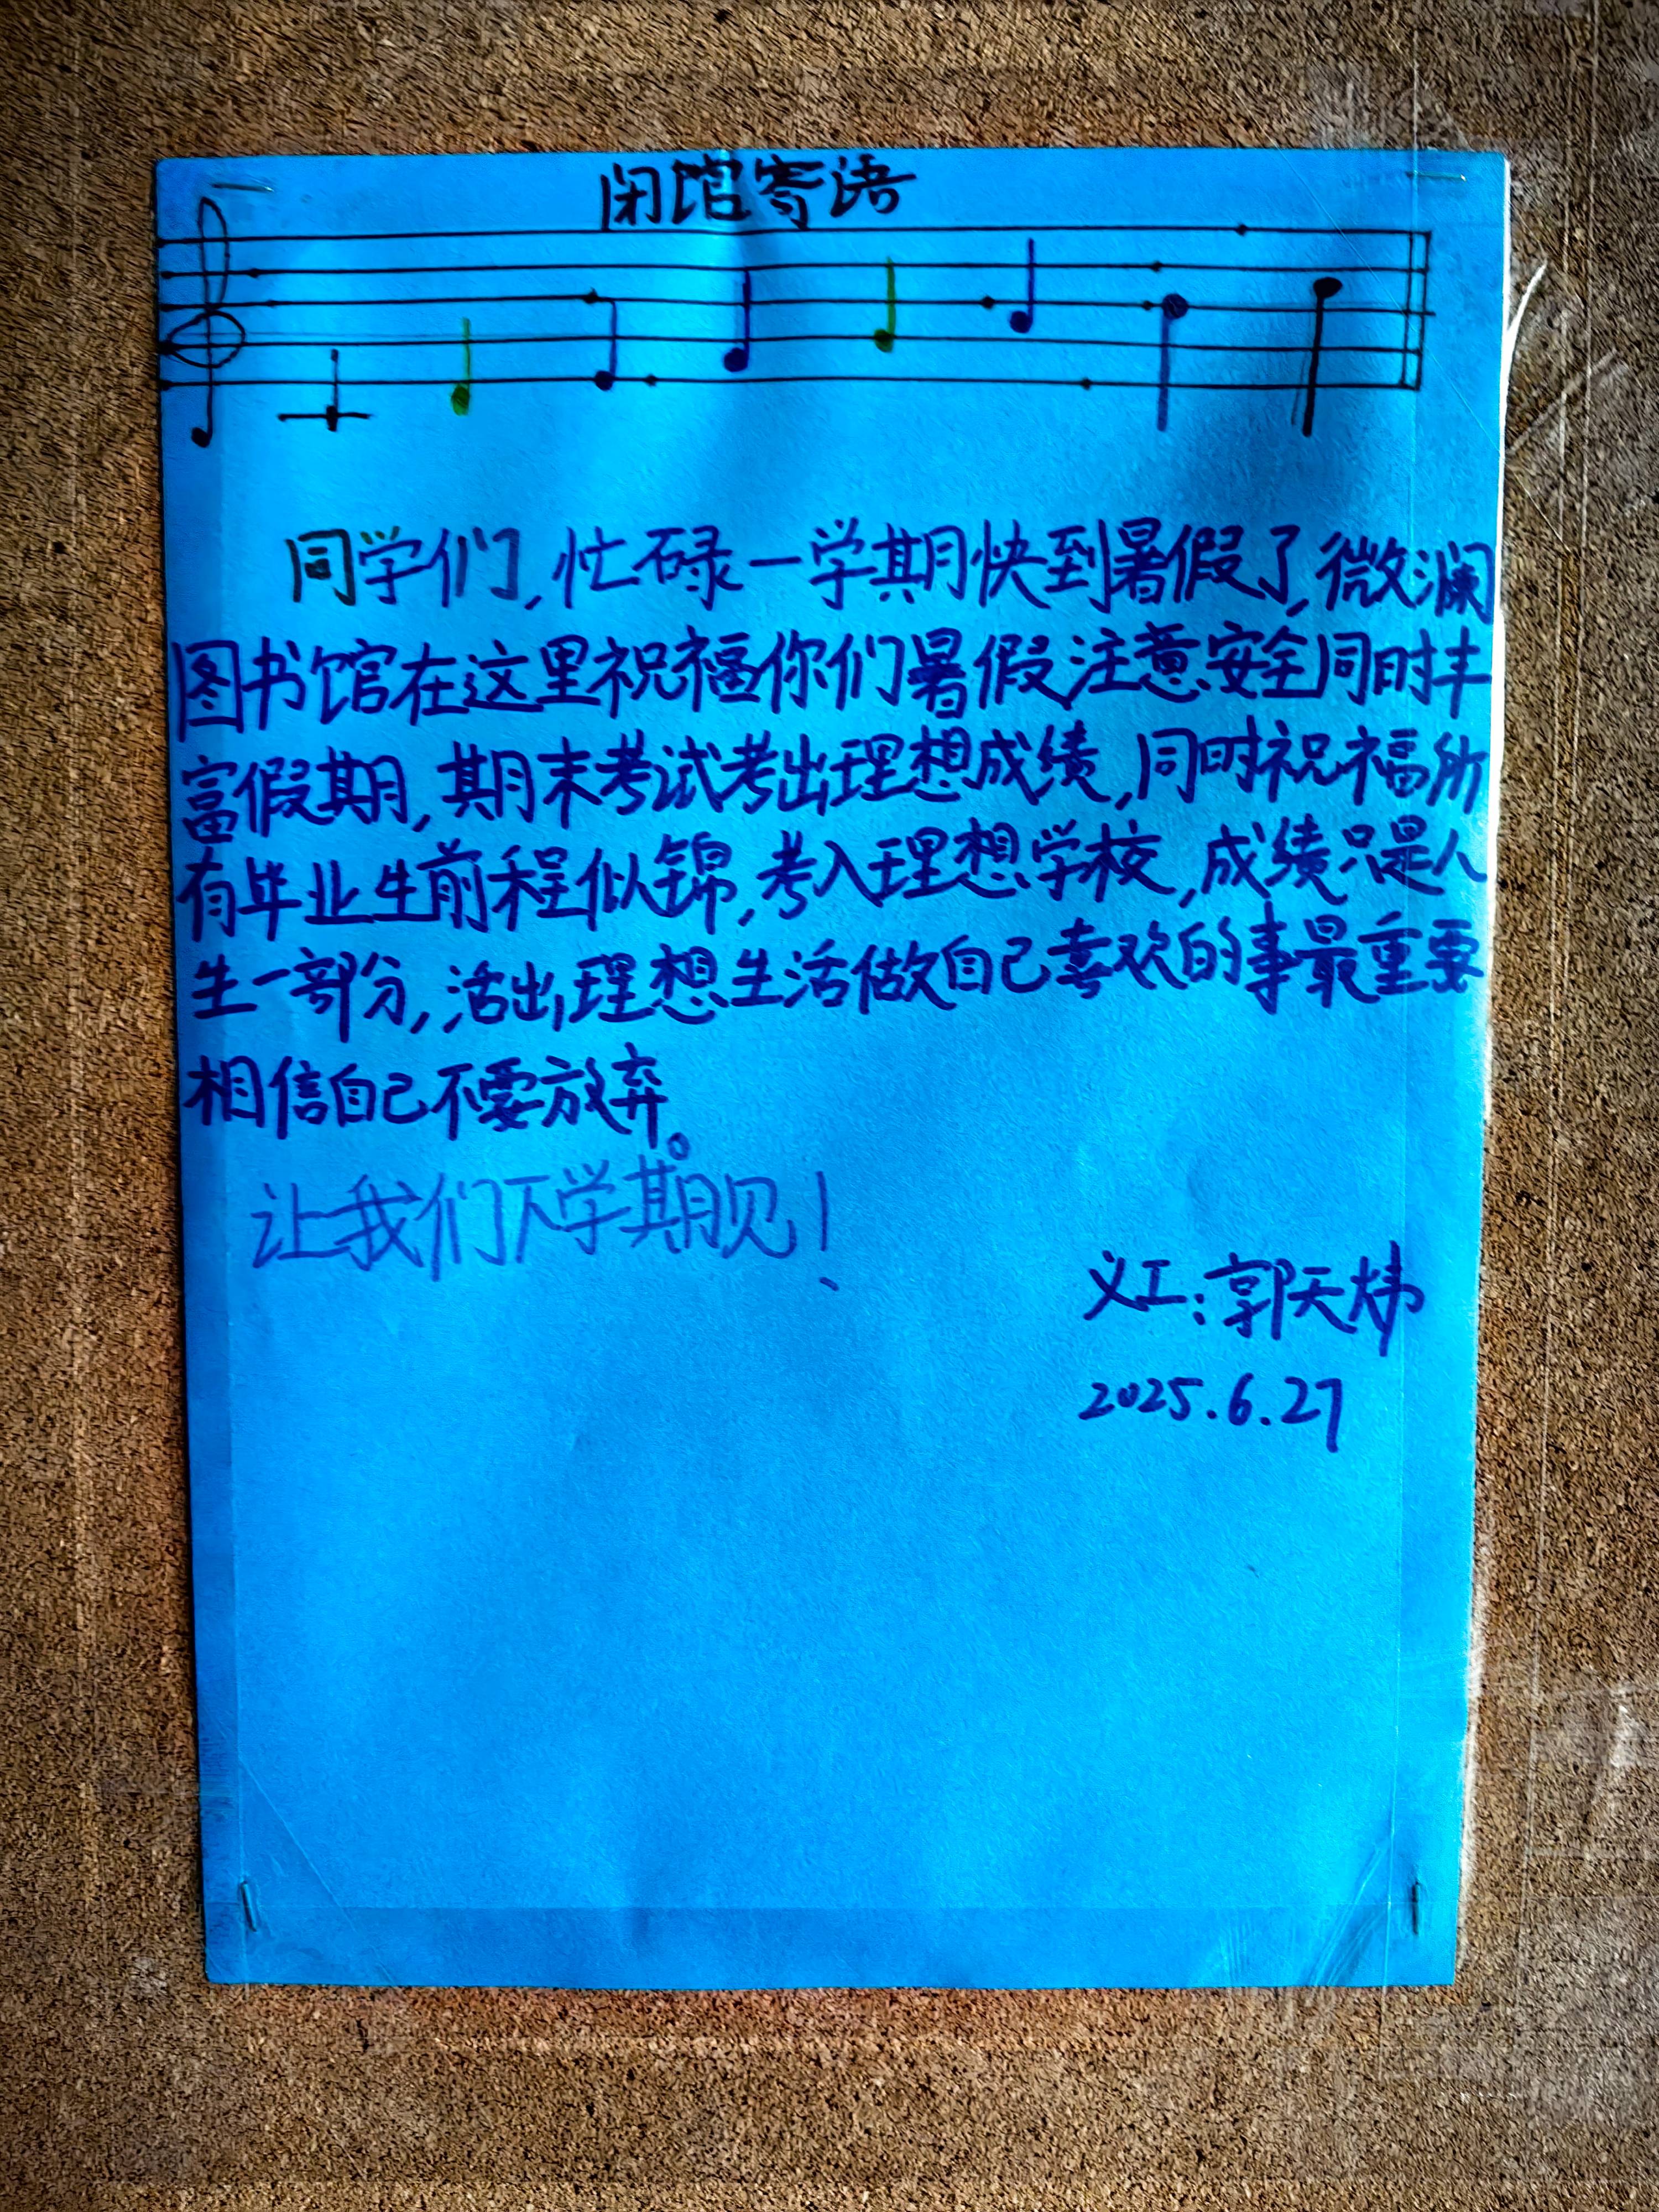 闭馆寄语
同学们,忙碌一学期快到暑假了,微澜
图书馆在这里祝福你们暑假注意安全同时丰
富假期,期末考试考出理想成绩,同时祝福所
有毕业生前程似锦,考入理想学校,成绩只是人
生一部分,活出理想生活做自己喜欢的事最重要
相信自己不要放弃。
让我们下学期见!
义工:郭天炜
2025.6.27